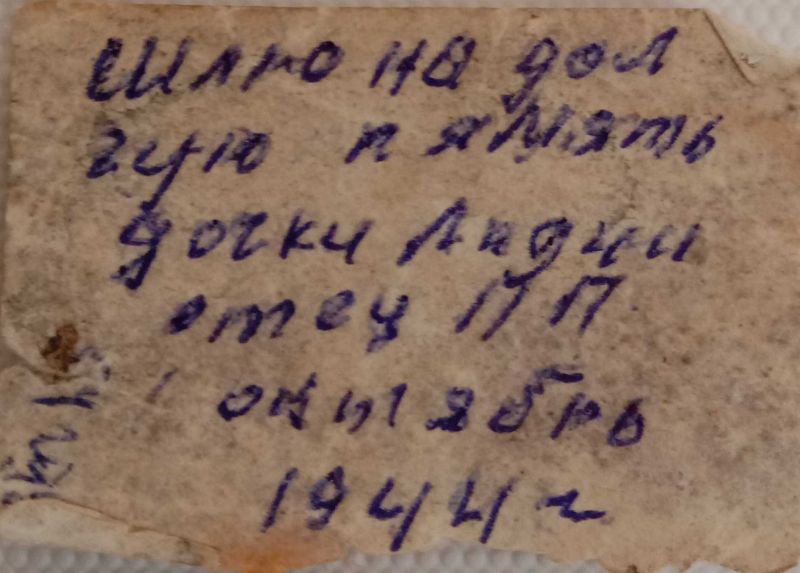 шлю на дол
гую память
дочки Лидии
отец П П
октябрь
1944 г